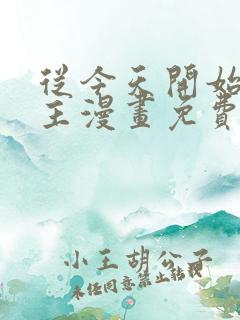 從今天開始
王漫畫免費
小王胡公子
未经同意禁止转载